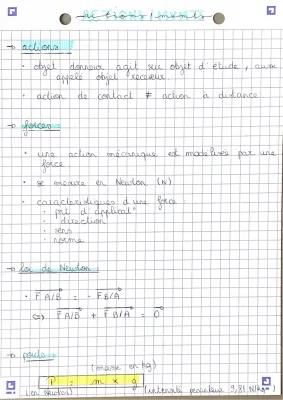 actions / mvmts
→ actions
• objet donneur agit sur objet d'étude, aussi
appelé objet receveur
• action de contact ≠ action à distance
→ forces
• une action mécanique est modélisée par une
force
• se mesure en Newton (N)
• caractéristiques d'une force :
• pnt d'applicat°
• direction
• sens
• norme
→ loi de Newton
• F A/B = - F B/A
⇔ F A/B + F B/A = 0
→ poids
(masse en kg)
P = m × g
(en Newton) (intensité pesanteur 9,81 N/kg)